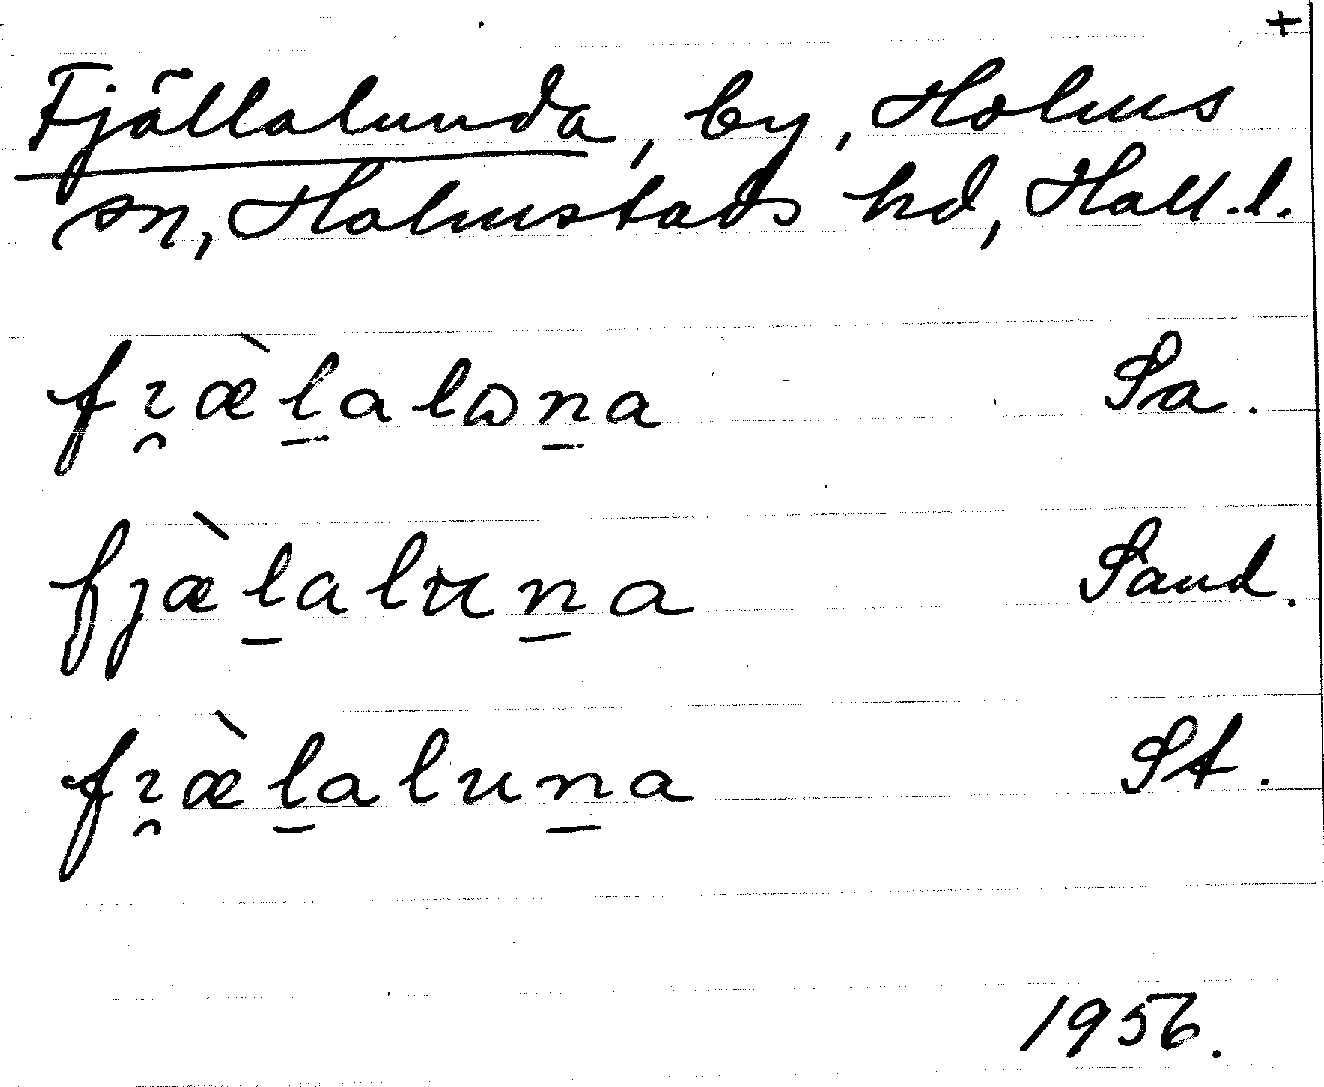 +
Fjällalunda, by, Holms
sn, Halmstads hd, Hall.l.
fı̯æ̀l̲alɷn̲a Sa.
fjæ̀l̲alun̲a Sand.
fı̯æ̀l̲alun̲a St.
1956.